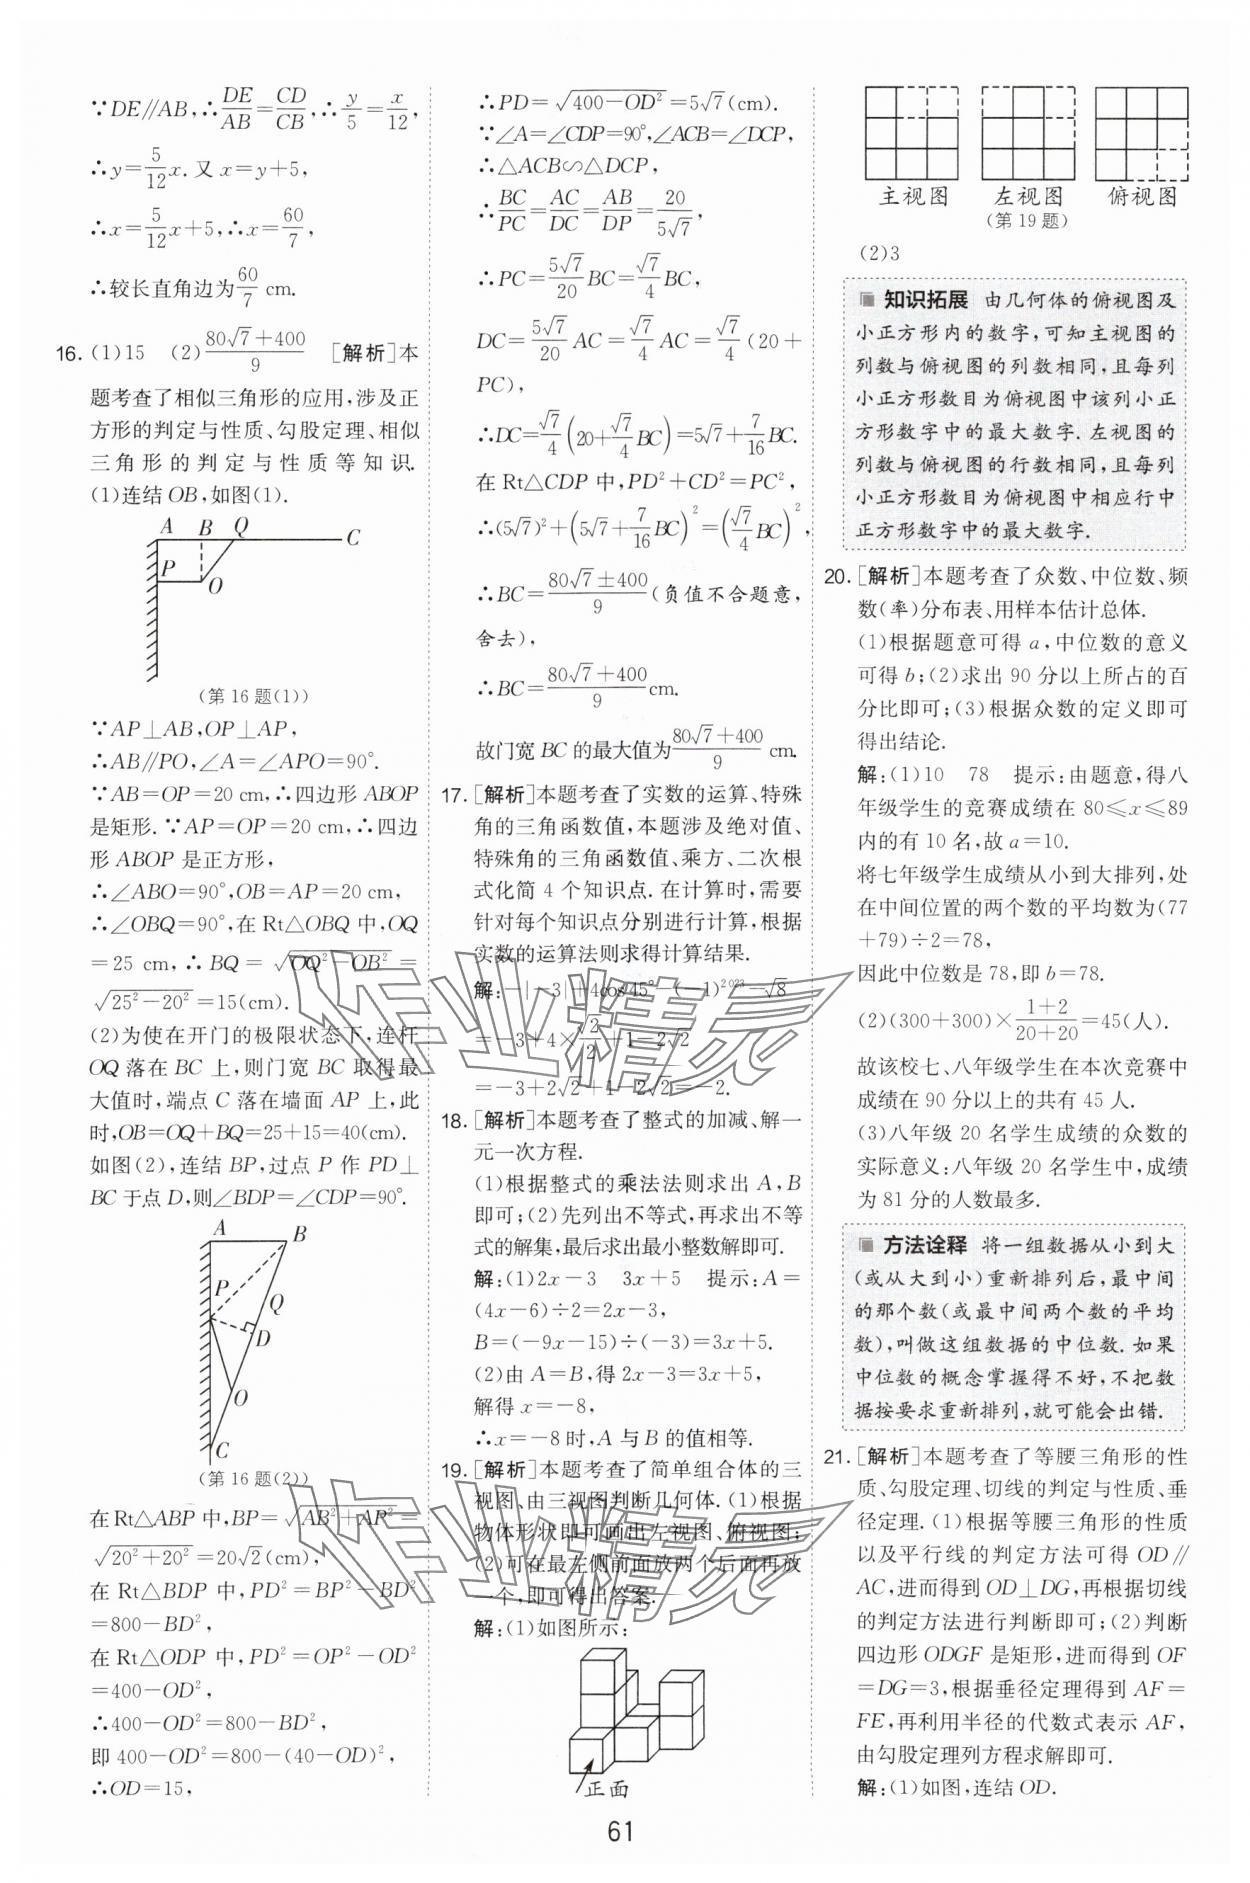 ∵DE∥AB,∴DE/AB=CD/CB,∴y/5=x/12,
∴y=5/12x.又x=y+5,
∴x=5/12x+5,∴x=60/7,
∴较长直角边为60/7 cm.
16.(1)15 (2)(80√7+400)/9 [解析]本
题考查了相似三角形的应用,涉及正
方形的判定与性质、勾股定理、相似
三角形的判定与性质等知识.
(1)连结OB,如图(1).
A B Q C
P O
(第16题(1))
∵AP⊥AB,OP⊥AP,
∴AB∥PO,∠A=∠APO=90°.
∵AB=OP=20 cm,∴四边形ABOP
是矩形.∵AP=OP=20 cm,∴四边
形ABOP是正方形,
∴∠ABO=90°,OB=AP=20 cm,
∴∠OBQ=90°,在Rt△OBQ中,OQ
=25 cm,∴BQ=√(OQ²-OB²)=
√(25²-20²)=15(cm).
(2)为使在开门的极限状态下,连杆
OQ落在BC上,则门宽BC取得最
大值时,端点C落在墙面AP上,此
时,OB=OQ+BQ=25+15=40(cm).
如图(2),连结BP,过点P作PD⊥
BC于点D,则∠BDP=∠CDP=90°.
A B
P Q
D
O
C
(第16题(2))
在Rt△ABP中,BP=√(AB²+AP²)=
√(20²+20²)=20√2(cm),
在Rt△BDP中,PD²=BP²-BD²
=800-BD²,
在Rt△ODP中,PD²=OP²-OD²
=400-OD²,
∴400-OD²=800-BD²,
即400-OD²=800-(40-OD)²,
∴OD=15,
∴PD=√(400-OD²)=5√7(cm).
∵∠A=∠CDP=90°,∠ACB=∠DCP,
∴△ACB∽△DCP,
∴BC/PC=AC/DC=AB/DP=20/(5√7),
∴PC=(5√7/20)BC=(√7/4)BC,
DC=(5√7/20)AC=(√7/4)AC=(√7/4)(20+
PC),
∴DC=(√7/4)(20+(√7/4)BC)=5√7+(7/16)BC.
在Rt△CDP中,PD²+CD²=PC²,
∴(5√7)²+(5√7+(7/16)BC)²=((√7/4)BC)²,
∴BC=(80√7±400)/9(负值不合题意,
舍去),
∴BC=(80√7+400)/9 cm.
故门宽BC的最大值为(80√7+400)/9 cm.
17.[解析]本题考查了实数的运算、特殊
角的三角函数值,本题涉及绝对值、
特殊角的三角函数值、乘方、二次根
式化简4个知识点.在计算时,需要
针对每个知识点分别进行计算,根据
实数的运算法则求得计算结果.
解:-|-3|+4cos45°-(-1)²⁰²³-√8
=-3+4×√2/2+1-2√2
=-3+2√2+1-2√2=-2.
18.[解析]本题考查了整式的加减、解一
元一次方程.
(1)根据整式的乘法法则求出A,B
即可;(2)先列出不等式,再求出不等
式的解集,最后求出最小整数解即可.
解:(1)2x-3 3x+5 提示:A=
(4x-6)÷2=2x-3,
B=(-9x-15)÷(-3)=3x+5.
(2)由A=B,得2x-3=3x+5,
解得x=-8,
∴x=-8时,A与B的值相等.
19.[解析]本题考查了简单组合体的三
视图、由三视图判断几何体.(1)根据
物体形状即可画出左视图、俯视图;
(2)可在最左侧前面放两个后面再放
一个,即可得出答案.
解:(1)如图所示:
正面
主视图 左视图 俯视图
(第19题)
(2)3
知识拓展 由几何体的俯视图及
小正方形内的数字,可知主视图的
列数与俯视图的列数相同,且每列
小正方形数目为俯视图中该列小正
方形数字中的最大数字.左视图的
列数与俯视图的行数相同,且每列
小正方形数目为俯视图中相应行中
正方形数字中的最大数字.
20.[解析]本题考查了众数、中位数、频
数(率)分布表、用样本估计总体.
(1)根据题意可得a,中位数的意义
可得b;(2)求出90分以上所占的百
分比即可;(3)根据众数的定义即可
得出结论.
解:(1)10 78 提示:由题意,得八
年级学生的竞赛成绩在80≤x≤89
内的有10名,故a=10.
将七年级学生成绩从小到大排列,处
在中间位置的两个数的平均数为(77
+79)÷2=78,
因此中位数是78,即b=78.
(2)(300+300)×(1+2)/(20+20)=45(人).
故该校七、八年级学生在本次竞赛中
成绩在90分以上的共有45人.
(3)八年级20名学生成绩的众数的
实际意义:八年级20名学生中,成绩
为81分的人数最多.
方法诠释 将一组数据从小到大
(或从大到小)重新排列后,最中间
的那个数(或最中间两个数的平均
数),叫做这组数据的中位数.如果
中位数的概念掌握得不好,不把数
据按要求重新排列,就可能会出错.
21.[解析]本题考查了等腰三角形的性
质、勾股定理、切线的判定与性质、垂
径定理.(1)根据等腰三角形的性质
以及平行线的判定方法可得OD∥
AC,进而得到OD⊥DG,再根据切线
的判定方法进行判断即可;(2)判断
四边形ODGF是矩形,进而得到OF
=DG=3,根据垂径定理得到AF=
FE,再利用半径的代数式表示AF,
由勾股定理列方程求解即可.
解:(1)如图,连结OD.
61
作业精灵
作业精灵